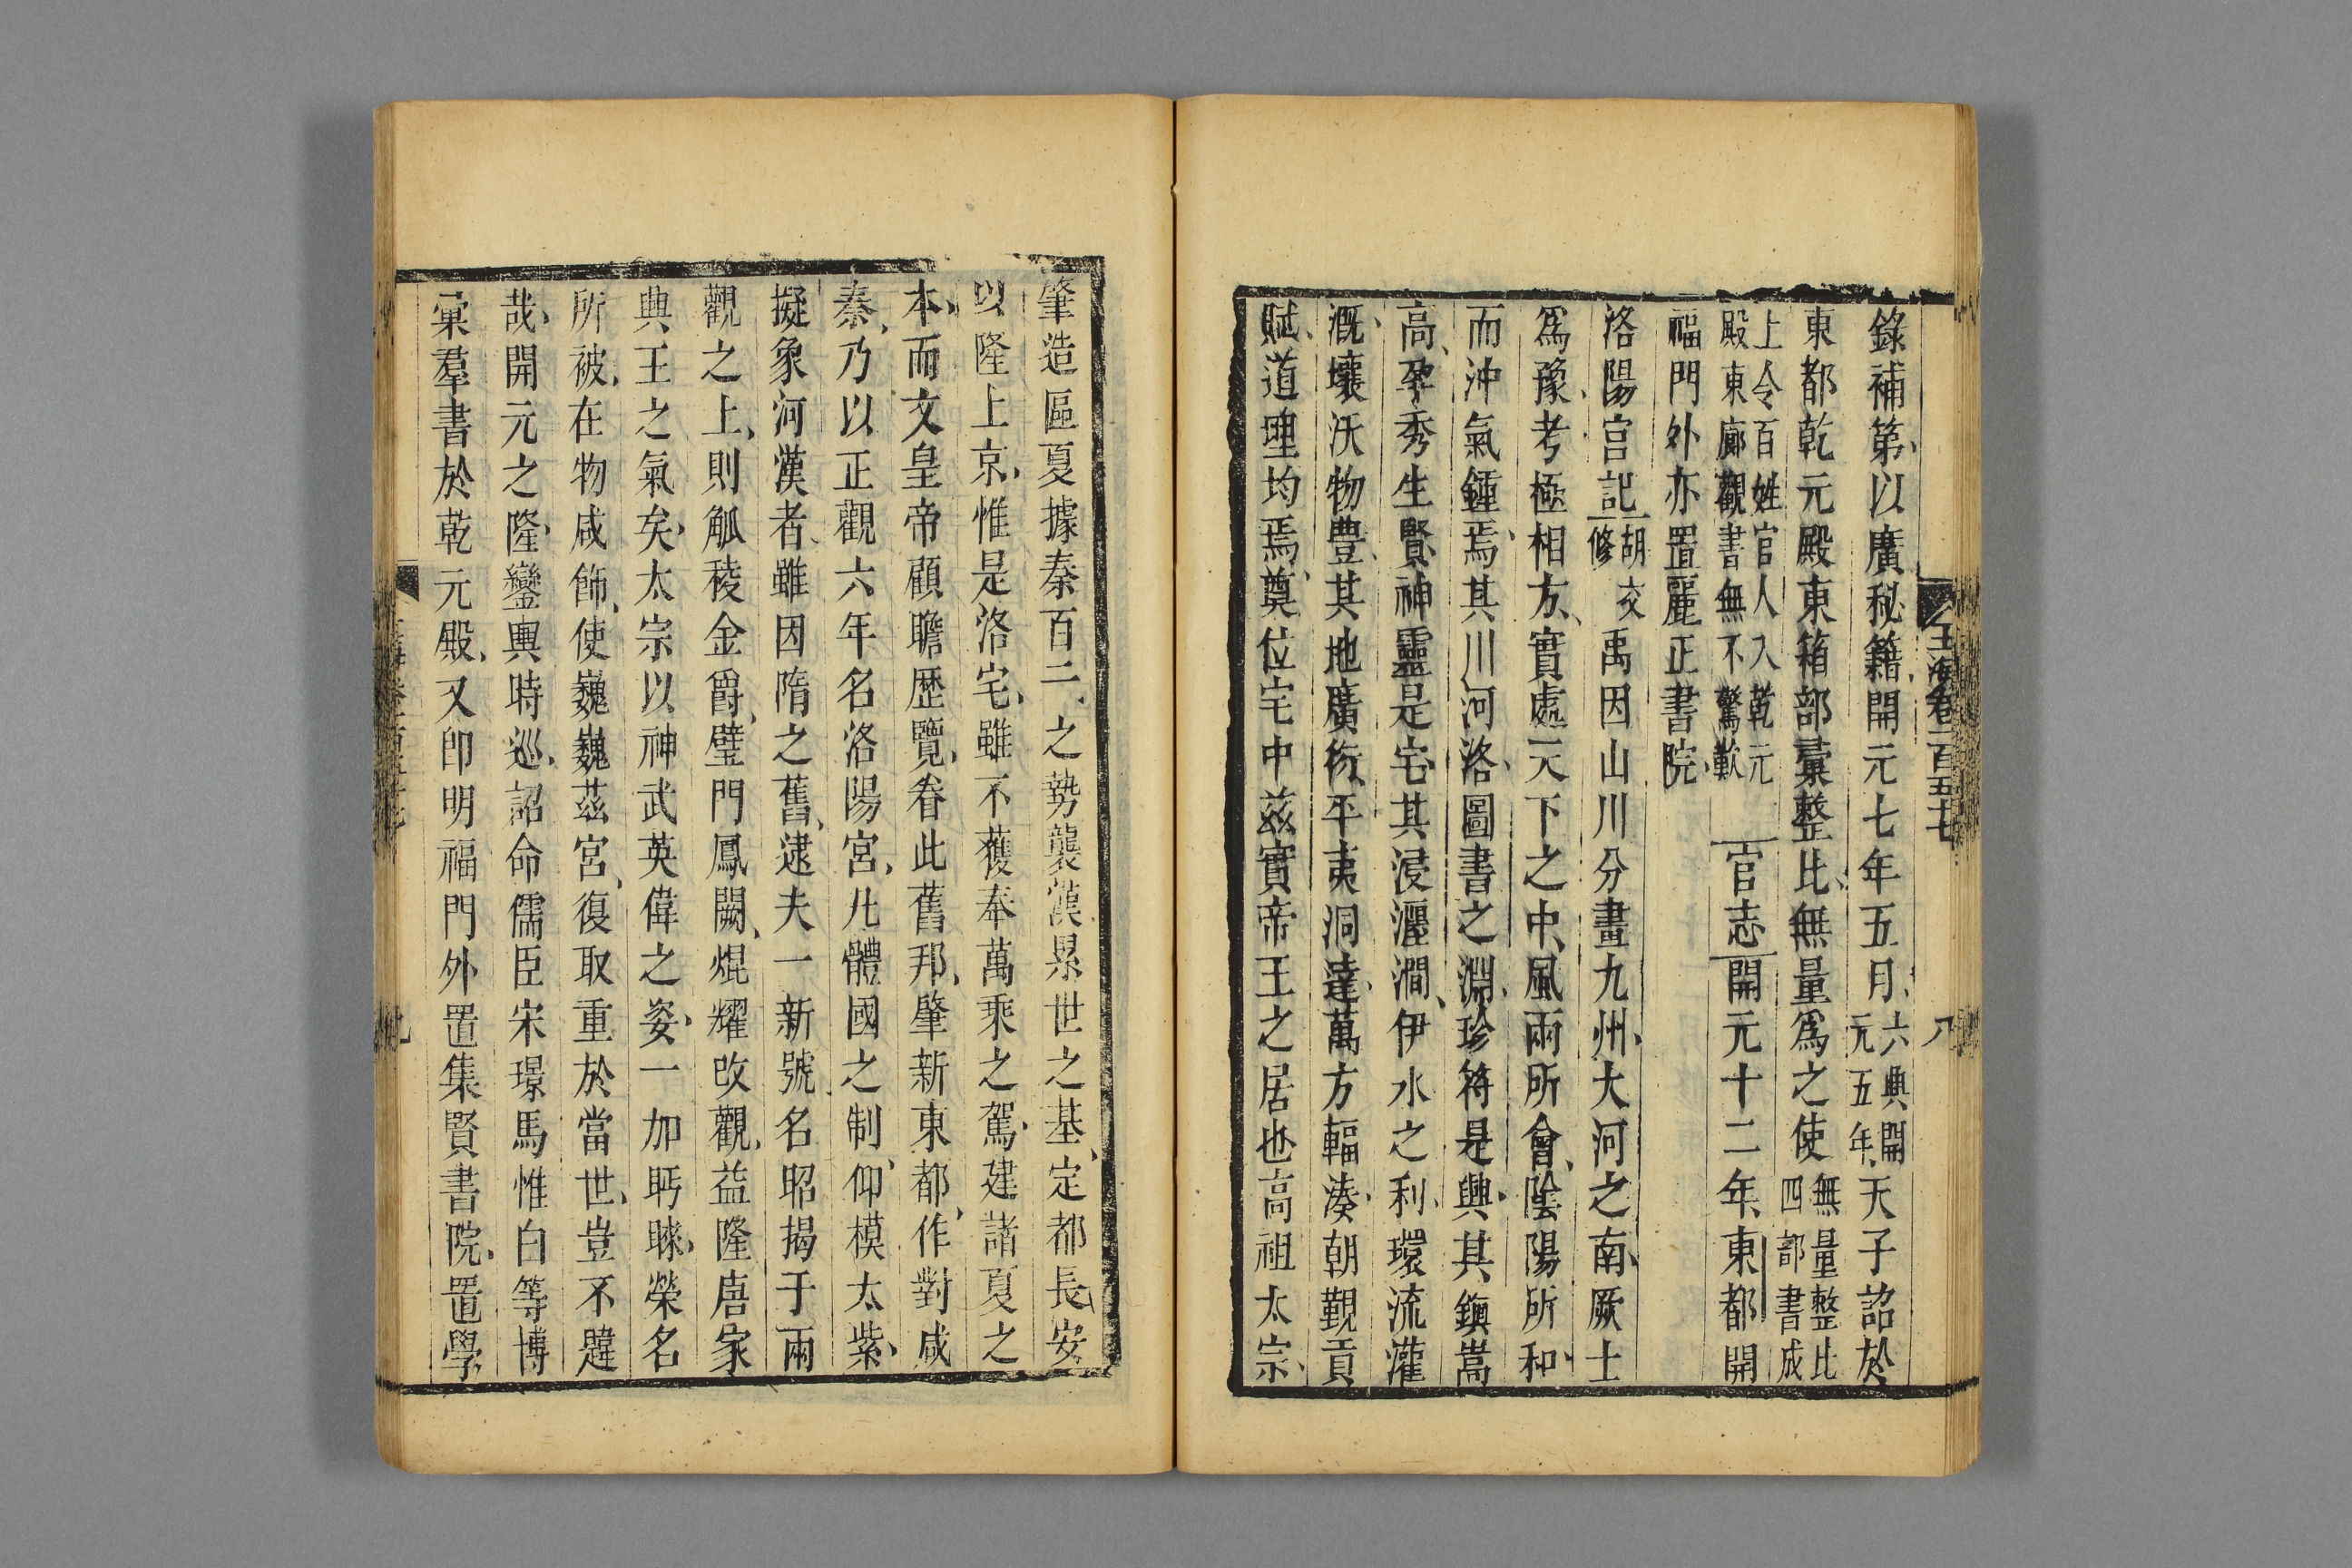 玉海卷一百五十七 八
錄補第以廣秘籍開元七年五月六典開元五年天子詔於
東都乾元殿東箱部彙整比無量爲之使無量整比四部書成
上令百姓官人入乾元殿東廊觀書無不驚歎 官志開元十二年東都開
福門外亦置麗正書院
洛陽宫記胡交修禹因山川分畫九州大河之南厥土
爲豫考極相方實處天下之中風雨所會陰陽所和
而沖氣鍾焉其川河洛圖書之淵珍符是興其鎭嵩
高孕秀生賢神靈是宅其浸瀍澗伊水之利環流灌
溉壤沃物豊其地廣衍平夷洞達萬方輻湊朝覲貢
賦道里均焉奠位宅中兹實帝王之居也高祖太宗
肇造區夏據秦百二之勢襲漢累世之基定都長安
以隆上京惟是洛宅雖不獲奉萬乘之駕建諸夏之
本而文皇帝顧瞻歷覽眷此舊邦肇新東都作對咸
秦乃以正觀六年名洛陽宮凡體國之制仰模太紫
擬象河漢者雖因隋之舊逮夫一新號名昭揭于兩
觀之上則觚稜金爵璧門鳳闕焜耀改觀益隆唐家
興王之氣矣太宗以神武英偉之姿一加眄睞榮名
所被在物咸飾使巍巍茲宮復取重於當世豈不韙
哉開元之隆鑾輿時巡詔命儒臣宋璟馬惟白等博
彙羣書於乾元殿又卽明福門外置集賢書院置學
九